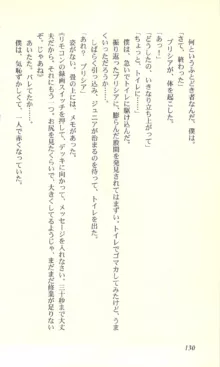 何というふとどき者なんだ。僕は。
「さて、終わった」
プリシアが、体を起こした。
「あっ！」
「どうしたの、いきなり立ち上がって」
「ちょっと、トイレに」
僕は、急いでトイレに駆け込んだ。
振り返ったプリシアに、膨らんだ股間を発見されてはまずい。トイレでゴマカしてみたけど、うま
くいっただろうか……。
しばらく引くまで、ジュニアが治まるのを待って、トイレを出た。
あれ？プリシア？
姿がない。が、メモがあった。
『リモコンの録画スイッチを押して、デッキに向かって、メッセージを入れなさい。三十秒まで大丈
夫だから。それともう一つ。お尻を見たくらいで、大きくしてるようじゃ、まだまだ修業が足りない
ぞ。じゃあね』
あっちゃあ。バレてたか……。
僕は、気恥ずかしくて、一人で赤くなっていた。
130